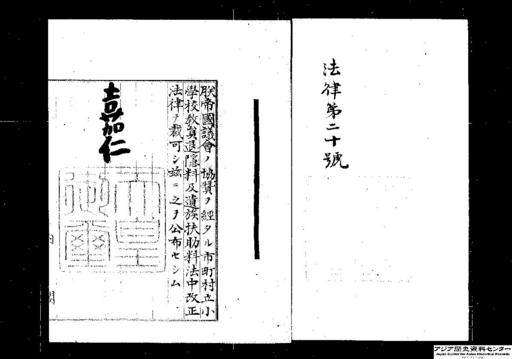 法律第二十號
朕帝國議會ノ協贊ヲ經タル市町村立小
學校教員退隱料及遺族扶助料法中改正
法律ヲ裁可シ玆ニ之ヲ公布セシム
嘉仁
天皇御璽
内閣
アジア歴史資料センター
Japan Center for Asian Historical Records